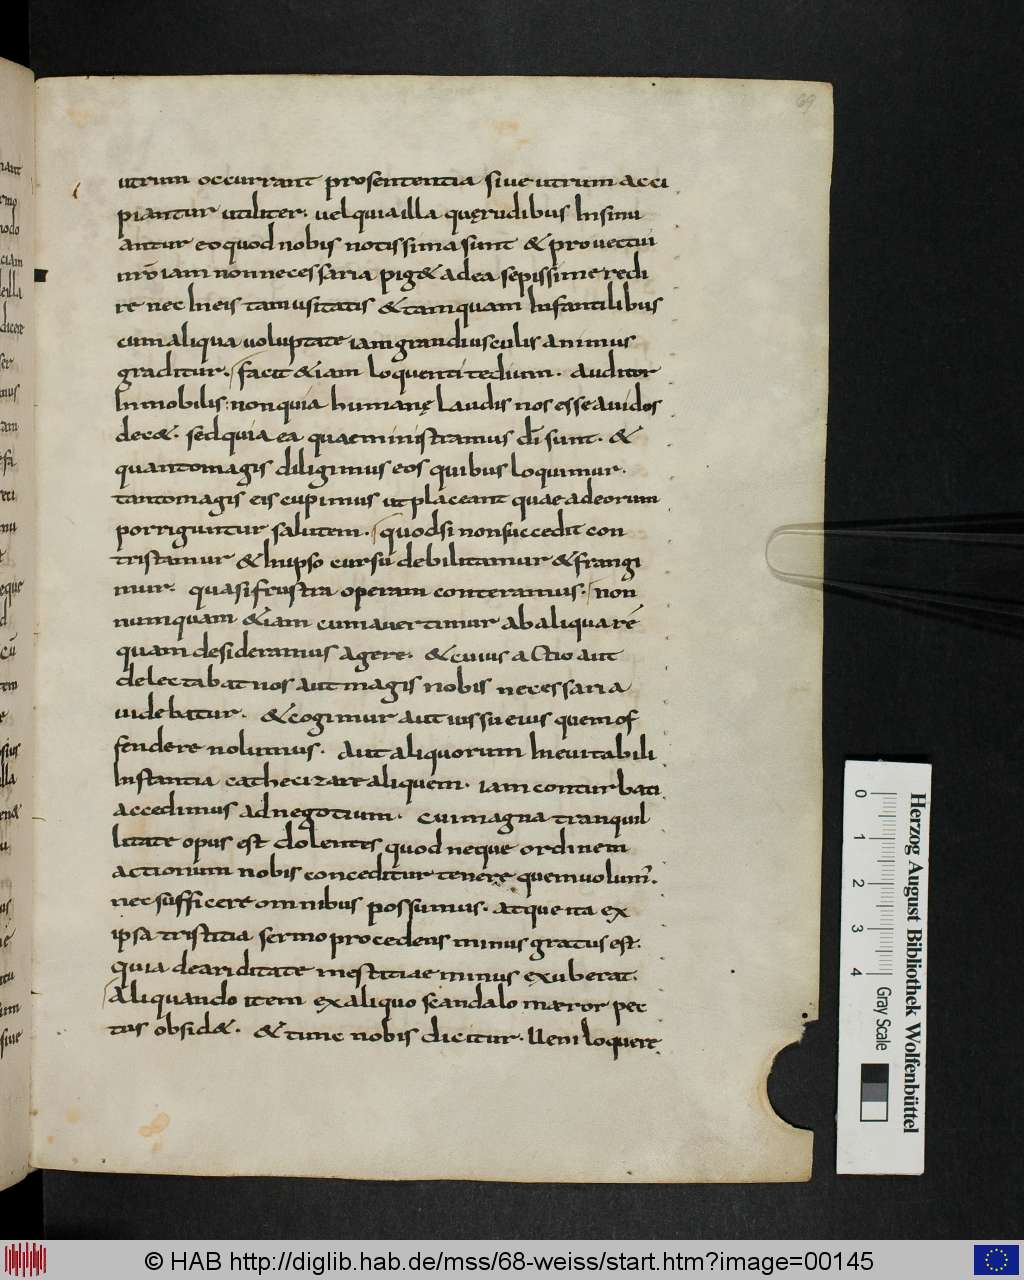 69
utrum occurrant prosententia siue utrum acci
piantur utiliter. uel quia illa quę rudibus Insinu
antur eo quod nobis notissima sunt & prouectui
nr̄o iam non necessaria pig& ad ea sepissime redi
re nec In eis tam usitatis & tamquam Infantilibus
cum aliqua uoluptate iam grandiusculis animus
graditur. facit & iam loquenti tedium. auditor
Inmobilis: non quia humanę laudis nos esse auidos
dec&. sed quia ea quae ministramus dī sunt. &
quanto magis diligimus eos quibus loquimur.
tanto magis eis cupimus ut placeant quae ad eorum
porriguntur salutem. quod si non succedit con
tristamur & In ipso cursu debilitamur & frangi
mur. quasi frustra operam conteramus. non
numquam & iam cum auertimur ab aliqua rē
quam desideramus agere. & cuius actio aut
delectabat nos aut magis nobis necessaria
uidebatur. & cogimur aut iussu eius quem of
fendere nolumus. aut aliquorum Ineuitabili
Instantia cathecizare aliquem. iam conturbati
accedimus ad negotium. cui magna tranquil
litate opus est dolentes quod neque ordinem
actionum nobis conceditur tenere quem uolum̄.
nec sufficere omnibus possumus. atque ita ex
ipsa tristitia sermo procedens minus gratus est.
quia de ariditate mestitiae minus exuberat.
aliquando item ex aliquo scandalo mæror pec
tus obsid&. & tunc nobis dicitur. Ueni loquere
0 1 2 3 4
Gray Scale
Herzog August Bibliothek Wolfenbüttel
© HAB http://diglib.hab.de/mss/68-weiss/start.htm?image=00145